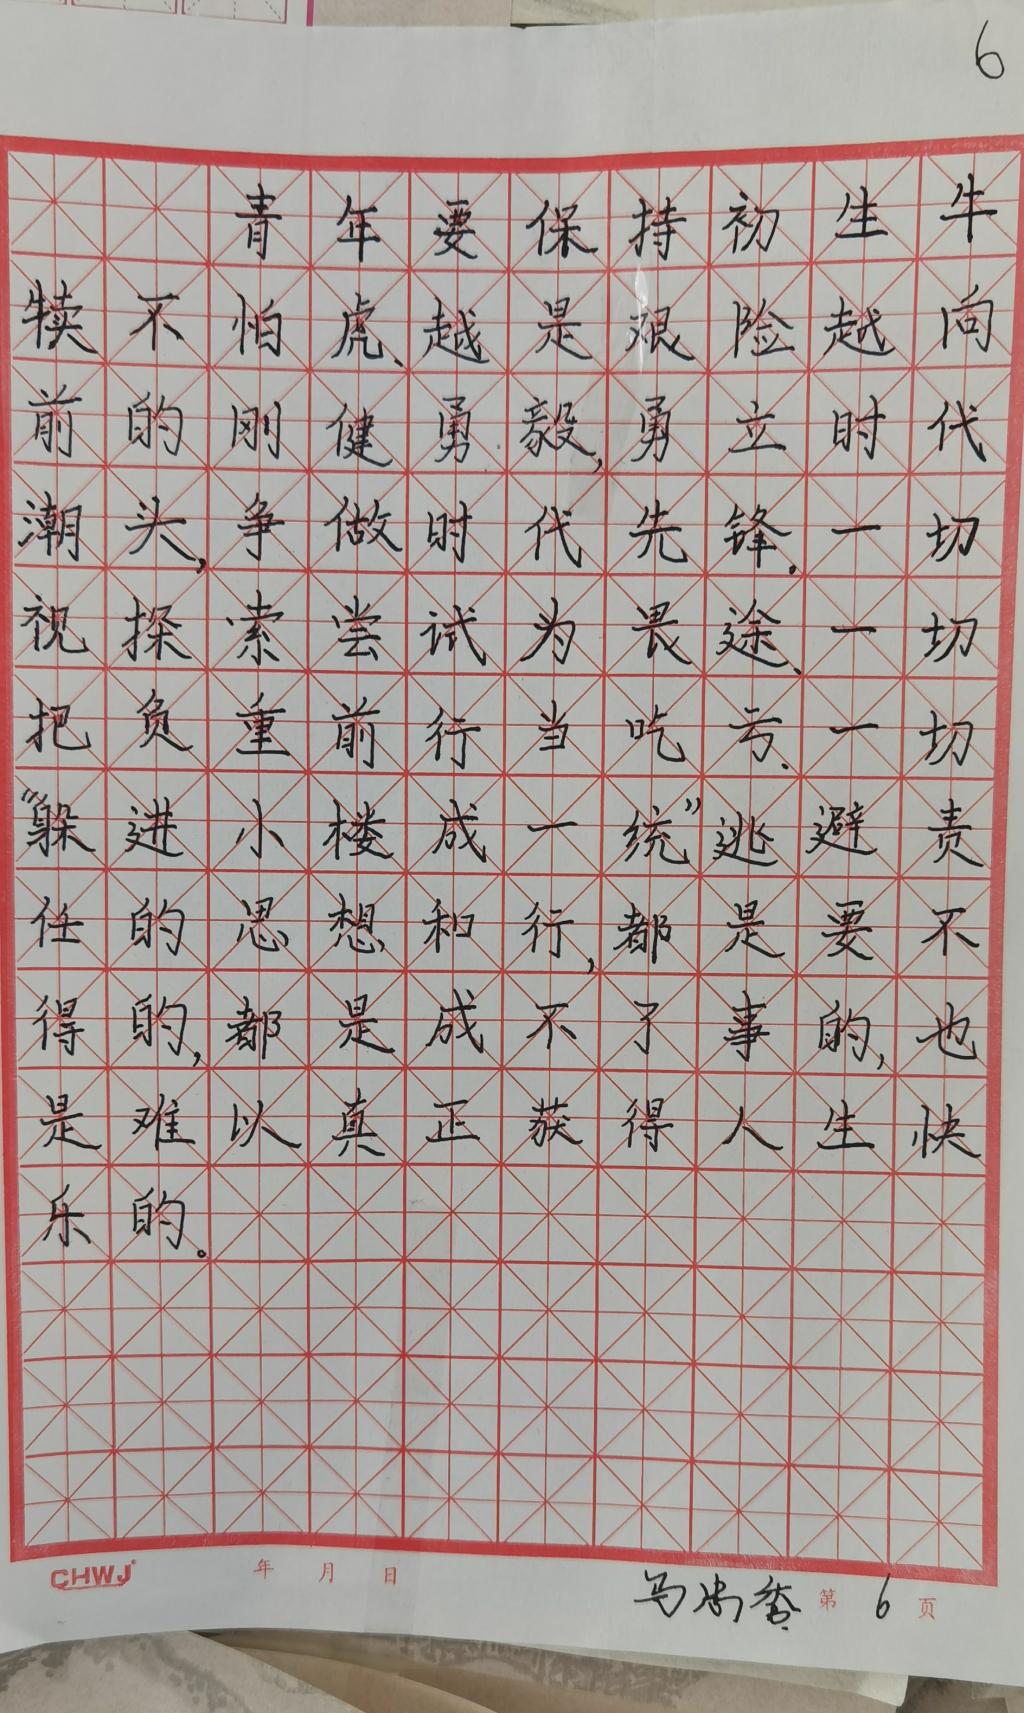 6
青年要保持初生牛
犊不怕虎、越是艰险越向
前的刚健勇毅,勇立时代
潮头,争做时代先锋.一切
视探索尝试为畏途、一切
把负重前行当吃亏、一切
“躲进小楼成一统”逃避责
任的思想和行,都是要不
得的,都是成不了事的,也
是难以真正获得人生快
乐的。
CHWJ 年 月 日 第 6 页